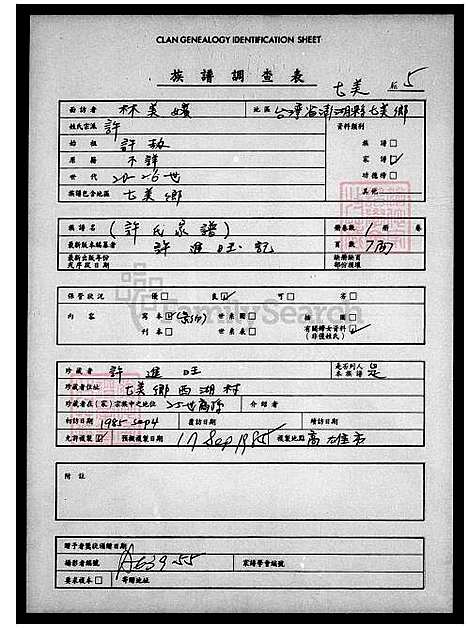 CLAN GENEALOGY IDENTIFICATION SHEET
族譜調查表
七美 5
面訪者 林美 地區 台灣省澎湖縣七美鄉
姓氏宗派 許 資料類別
始祖 許 族譜□
原籍 不詳 家譜☑
世代 20-26世 功德榜□
族譜包含地區 七美鄉 其他
族譜名 (許氏家譜) 冊卷數 1 冊 卷
最新版本編纂者 許進旺記 頁數 7面
最新出版年份或序段日期 缺冊缺頁部份獲填
保管狀況 優□ 良☑ 可□ 劣□
內容 寫本☑ 世系圖□ 繪圖□
刊本□ 世系表□ 有關婦女資料☑ (非僅姓氏)
FamilySearch
珍藏者 許進旺 是否列入本族譜 是
珍藏者住址 七美鄉西湖村
珍藏者在(家)宗族中之地位 25世裔孫 介紹者
初訪日期 1985 Sep 4 覆訪日期 續訪日期
允許複製☑ 預擬複製日期 17 Sep 1985 複製地點 高雄市
附註
贈予者簽狀函贈日期
攝影者編號 A639-55 家緣學會編號
要求複本□ 寄贈地址